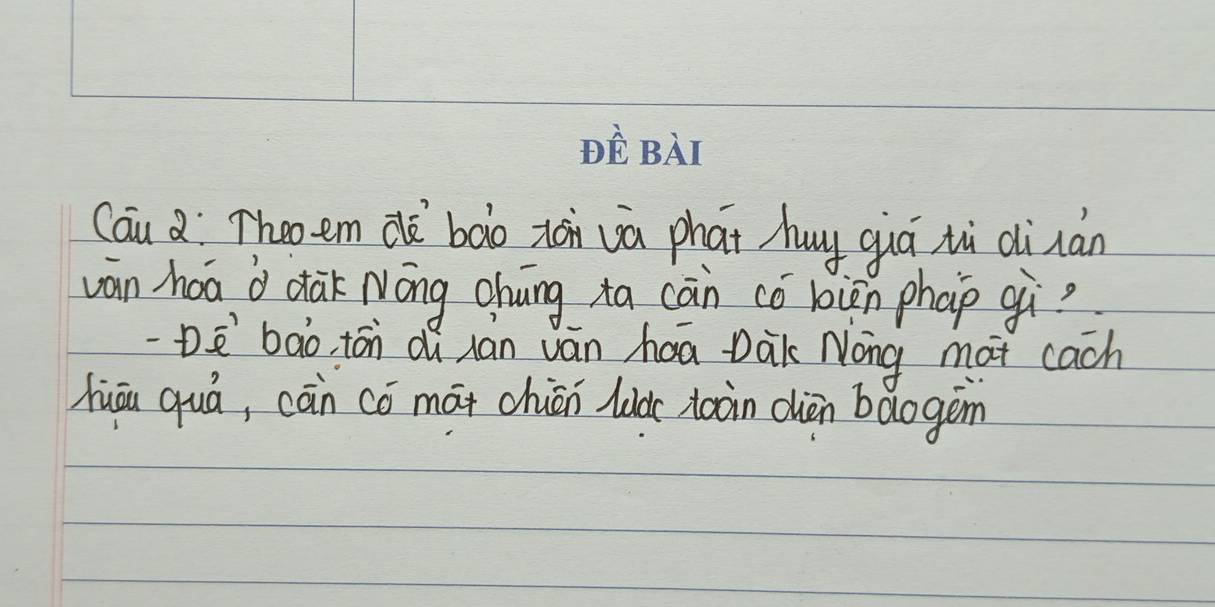 ĐỀ BÀI
Câu 2: Theo em để bảo tồn và phát huy giá trị di sản
văn hoá ở đăk Nông chúng ta cần có biện pháp gì?
- Để bảo tồn di sản văn hoá Đăk Nông một cách
hiệu quả, cần có một chiến lược toàn diện bao gồm